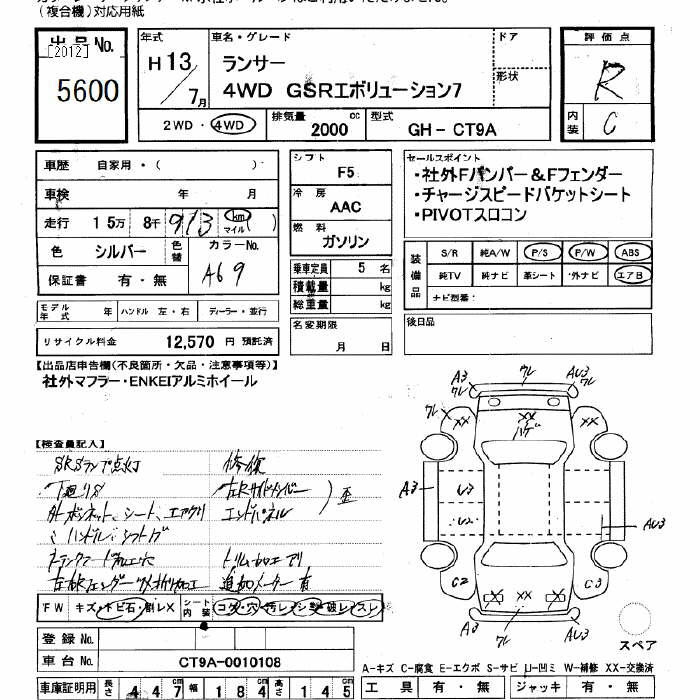 (複合機)対応用紙
出品No.
[2012]
5600
年式
H13/7月
車名・グレード
ランサー
4WD GSRエボリューション7
ドア
形状
評価点
R
内装
C
2WD・4WD
排気量
2000
cc
型式
GH-CT9A
車歴 自家用・( )
車検 年 月
走行 15万 8千 913 km マイル ( )
色 シルバー
色替
カラーNo.
A69
保証書 有・無
シフト
F5
冷房
AAC
燃料
ガソリン
乗車定員 5 名
積載量 kg
総重量 kg
名変期限
月 日
セールスポイント
・社外Fバンパー&Fフェンダー
・チャージスピードバケットシート
・PIVOTスロコン
装備品
S/R 純A/W P/S P/W ABS
純TV 純ナビ 革シート 外ナビ エアB
ナビ型番:
後日品
モデル年式 年 ハンドル 左・右 ディーラー・並行
リサイクル料金 12,570 円 預託済
【出品店申告欄(不良箇所・欠品・注意事項等)】
社外マフラー・ENKEIアルミホイール
【検査員記入】
SRSランプ点灯 修復
下廻りS
エンドパネル
歪
トリム加工アリ
追加メーター有
FW キズ・トビ石・割レX
シート内装
コゲ・穴・汚レ・シミ・破レ・スレ
登録No.
車台No. CT9A-0010108
車庫証明用 長さ 447 cm 幅 184 cm 高さ 145 cm
A3
ワレ
AU3
ワレ
ワレ
XX
XX
ハゲ
XX
A3
U3
U2
AU3
C2
C3
X
XX
X
ワレ
AU3
スペア
A-キズ C-腐食 E-エクボ S-サビ U-凹ミ W-補修 XX-交換済
工具 有・無 ジャッキ 有・無